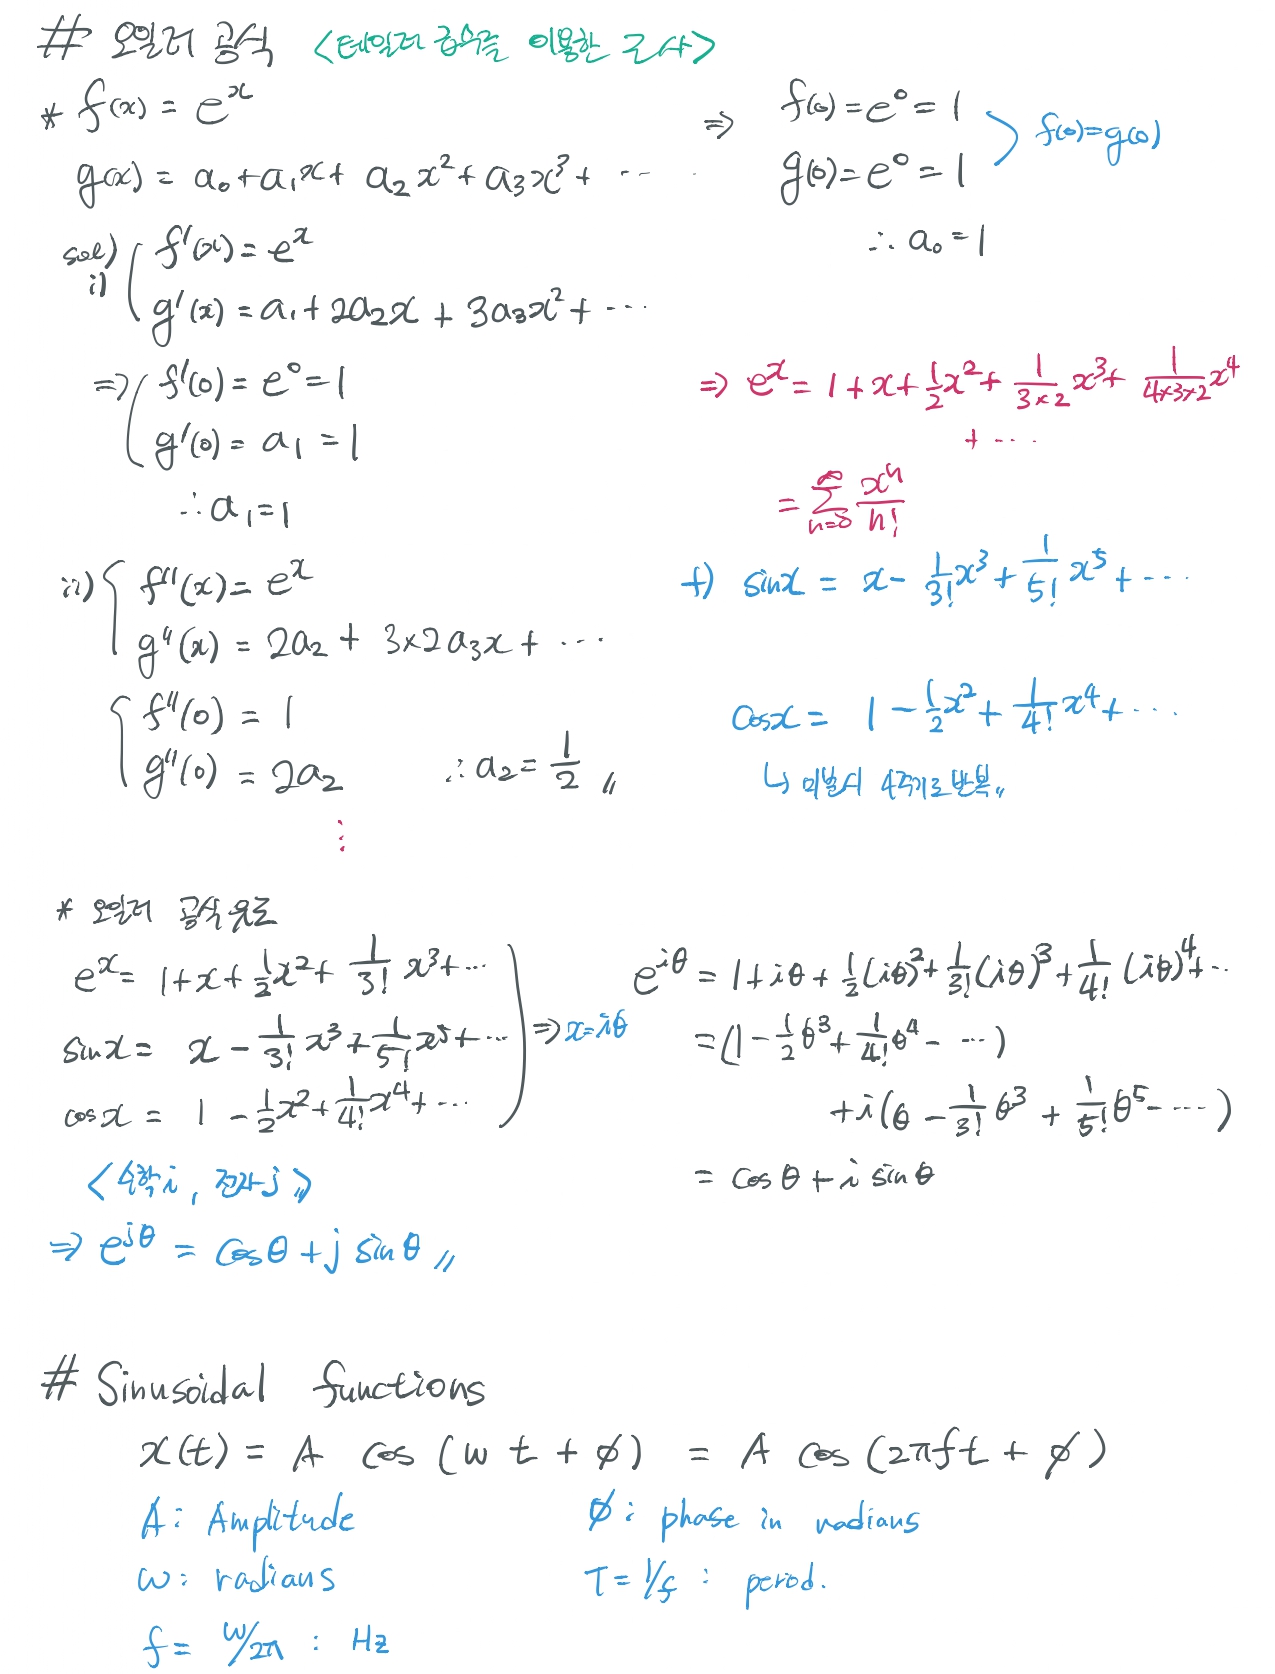 # 오일러 공식 <테일러 급수를 이용한 근사>
* f(x) = e^x
g(x) = a₀+a₁x+ a₂x²+a₃x³+ ⋯
⇒ f(0)=e⁰=1
g(0)=e⁰=1
f(0)=g(0)
∴ a₀=1
sol)
i) f'(x)=e^x
g'(x)=a₁+2a₂x+3a₃x²+⋯
⇒ f'(0)=e⁰=1
g'(0)=a₁=1
∴a₁=1
ii) f''(x)=e^x
g''(x)=2a₂+ 3×2a₃x+⋯
f''(0)=1
g''(0)=2a₂ ∴a₂=1/2 〃
⋮
⇒ e^x=1+x+1/2x²+1/(3×2)x³+1/(4×3×2)x⁴
+⋯
=∑_{n=0}^{∞} x^n/n!
+) sinx = x-1/3!x³+1/5!x⁵+⋯
cosx= 1-1/2x²+1/4!x⁴+⋯
↳ 미분시 4주기로 반복〃
* 오일러 공식 유도
e^x= 1+x+1/2x²+1/3!x³+⋯
sinx= x-1/3!x³+1/5!x⁵+⋯
cosx= 1-1/2x²+1/4!x⁴+⋯
⇒ x=iθ
e^{iθ}=1+iθ+1/2(iθ)²+1/3!(iθ)³+1/4!(iθ)⁴+⋯
=(1-1/2θ³+1/4!θ⁴-⋯)
+i(θ-1/3!θ³+1/5!θ⁵-⋯)
= cosθ+i sinθ
<수학i, 전자j>
⇒ e^{jθ} = cosθ+j sinθ〃
# Sinusoidal functions
x(t) = A cos (w t + ϕ) = A cos (2πft + ϕ)
A: Amplitude
ϕ: phase in radians
w: radians
T=1/f : period.
f= w/2π : Hz